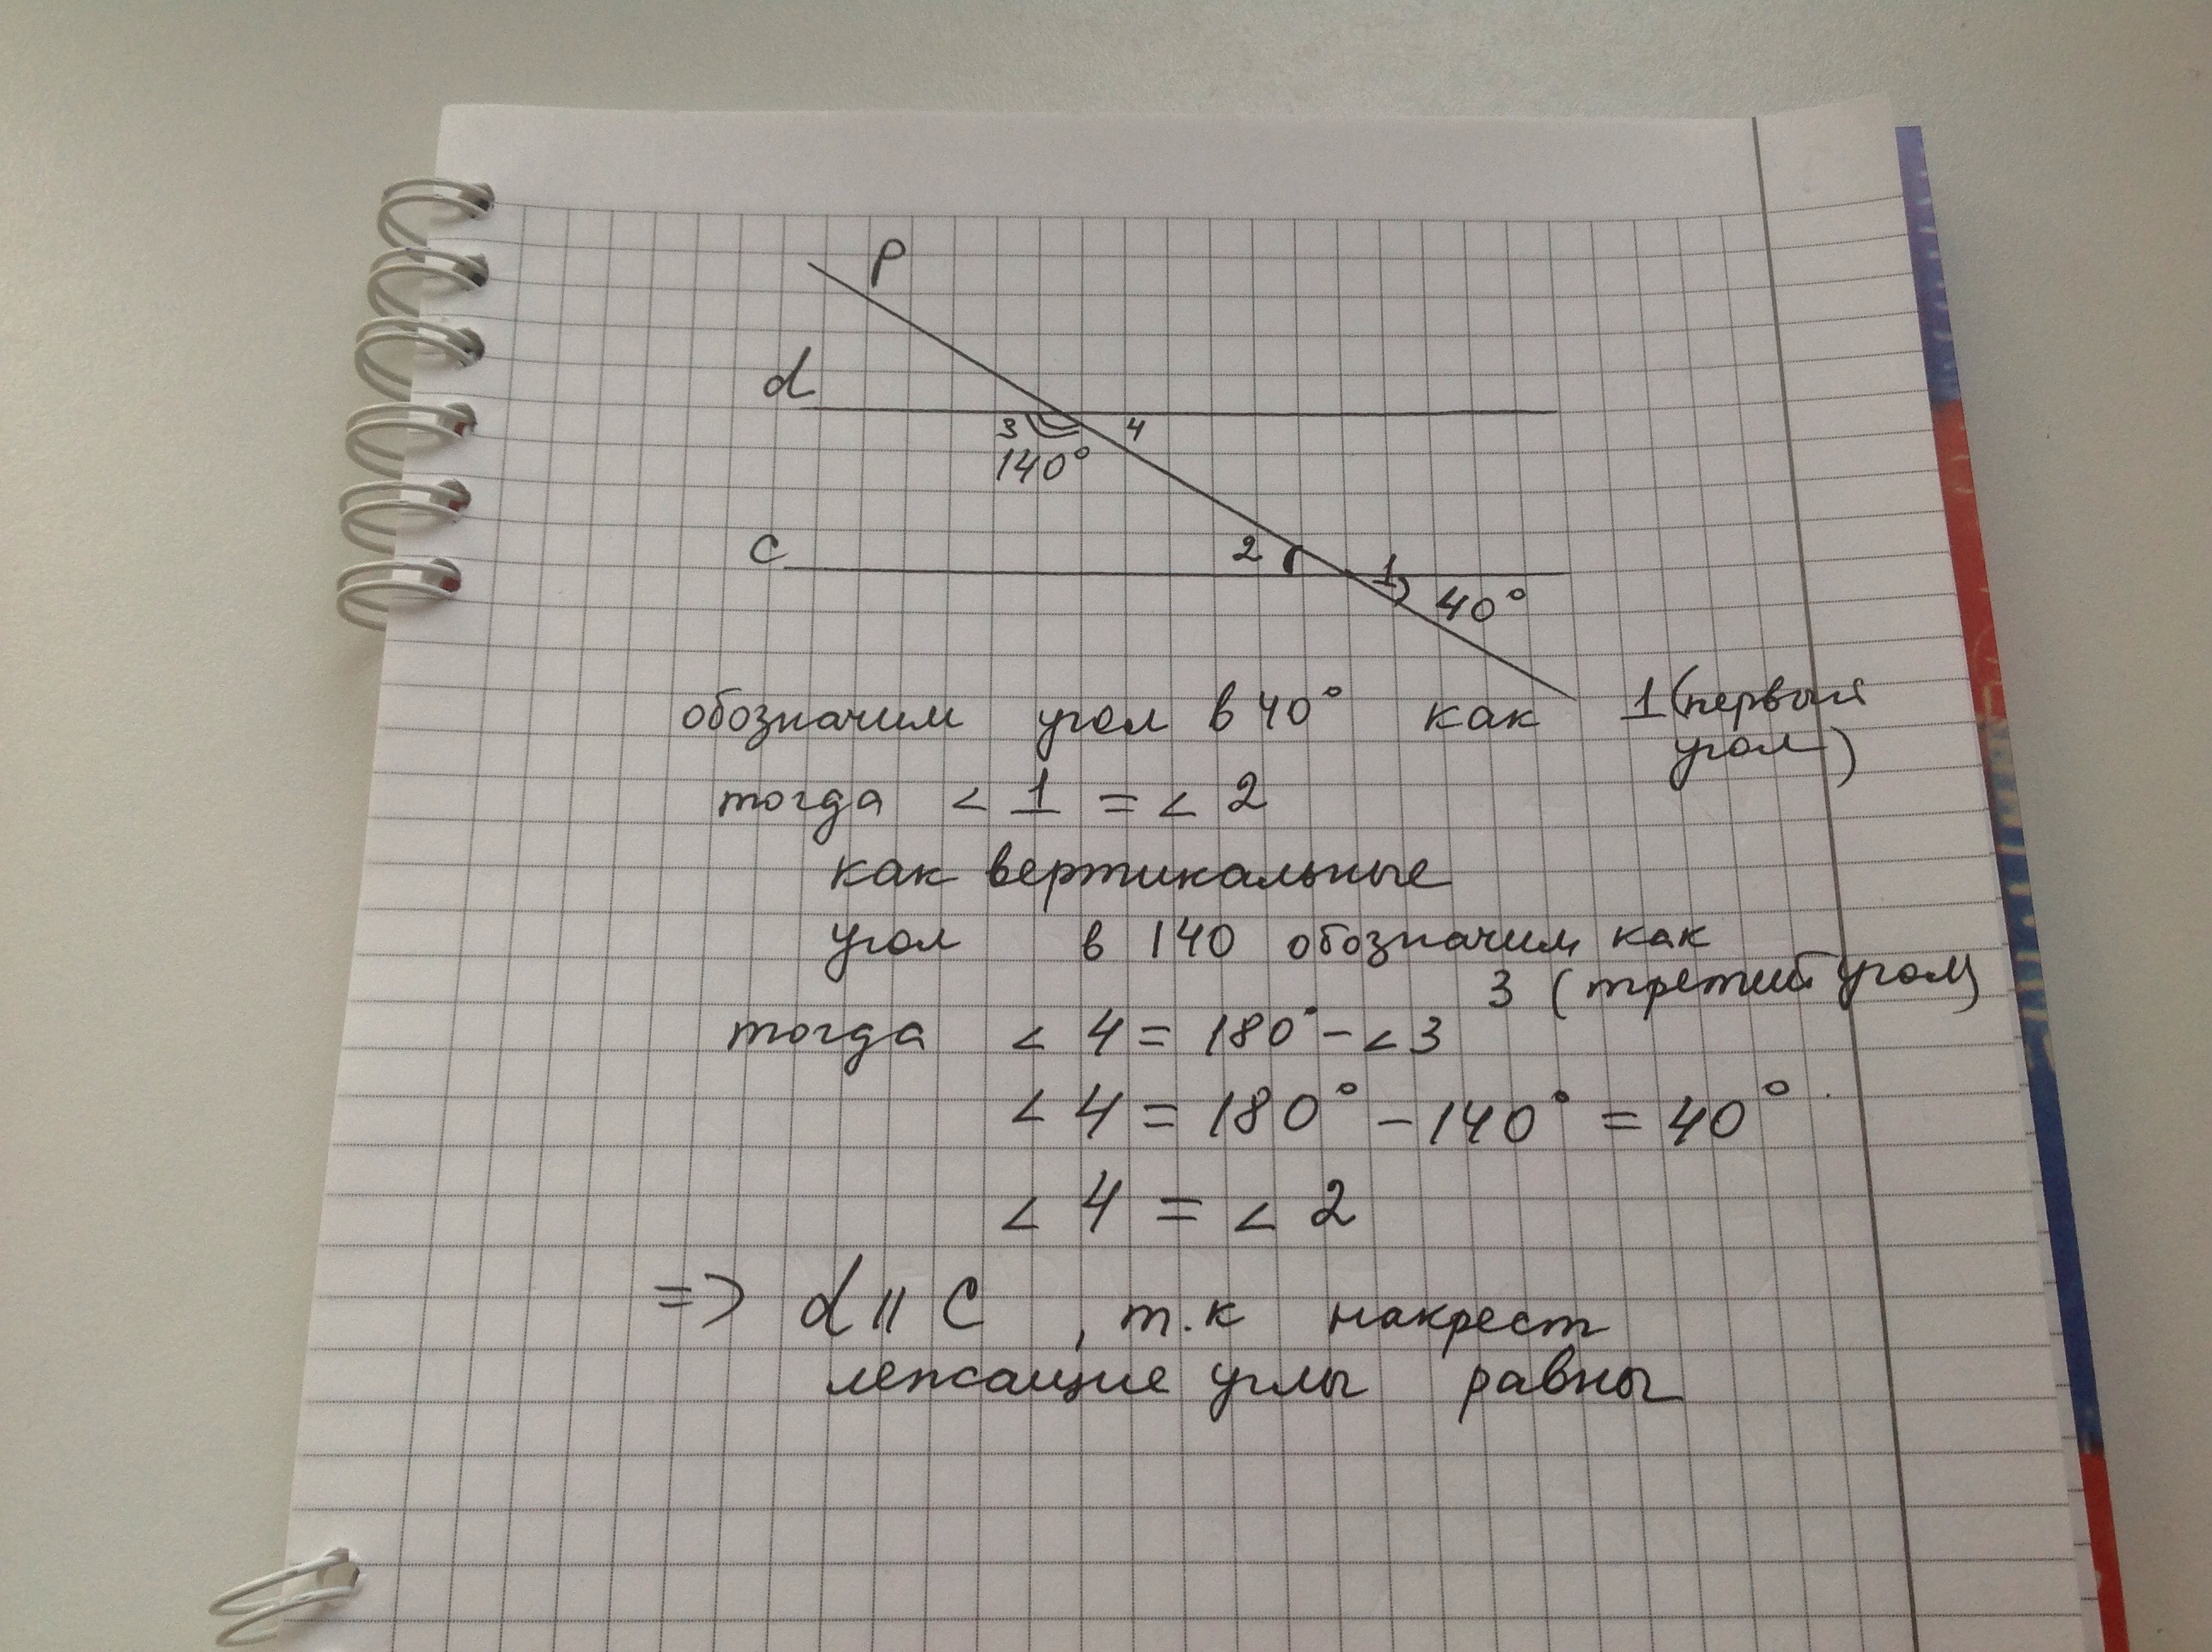 p
d
3
4
140°
c
2
1
40°
обозначим угол в 40° как 1 (первый
угол)
тогда < 1 = < 2
как вертикальные
угол в 140 обозначим как
3 (третий угол)
тогда < 4 = 180° - < 3
< 4 = 180° - 140° = 40°
< 4 = < 2
=> d || c , т.к накрест
лежащие углы равны